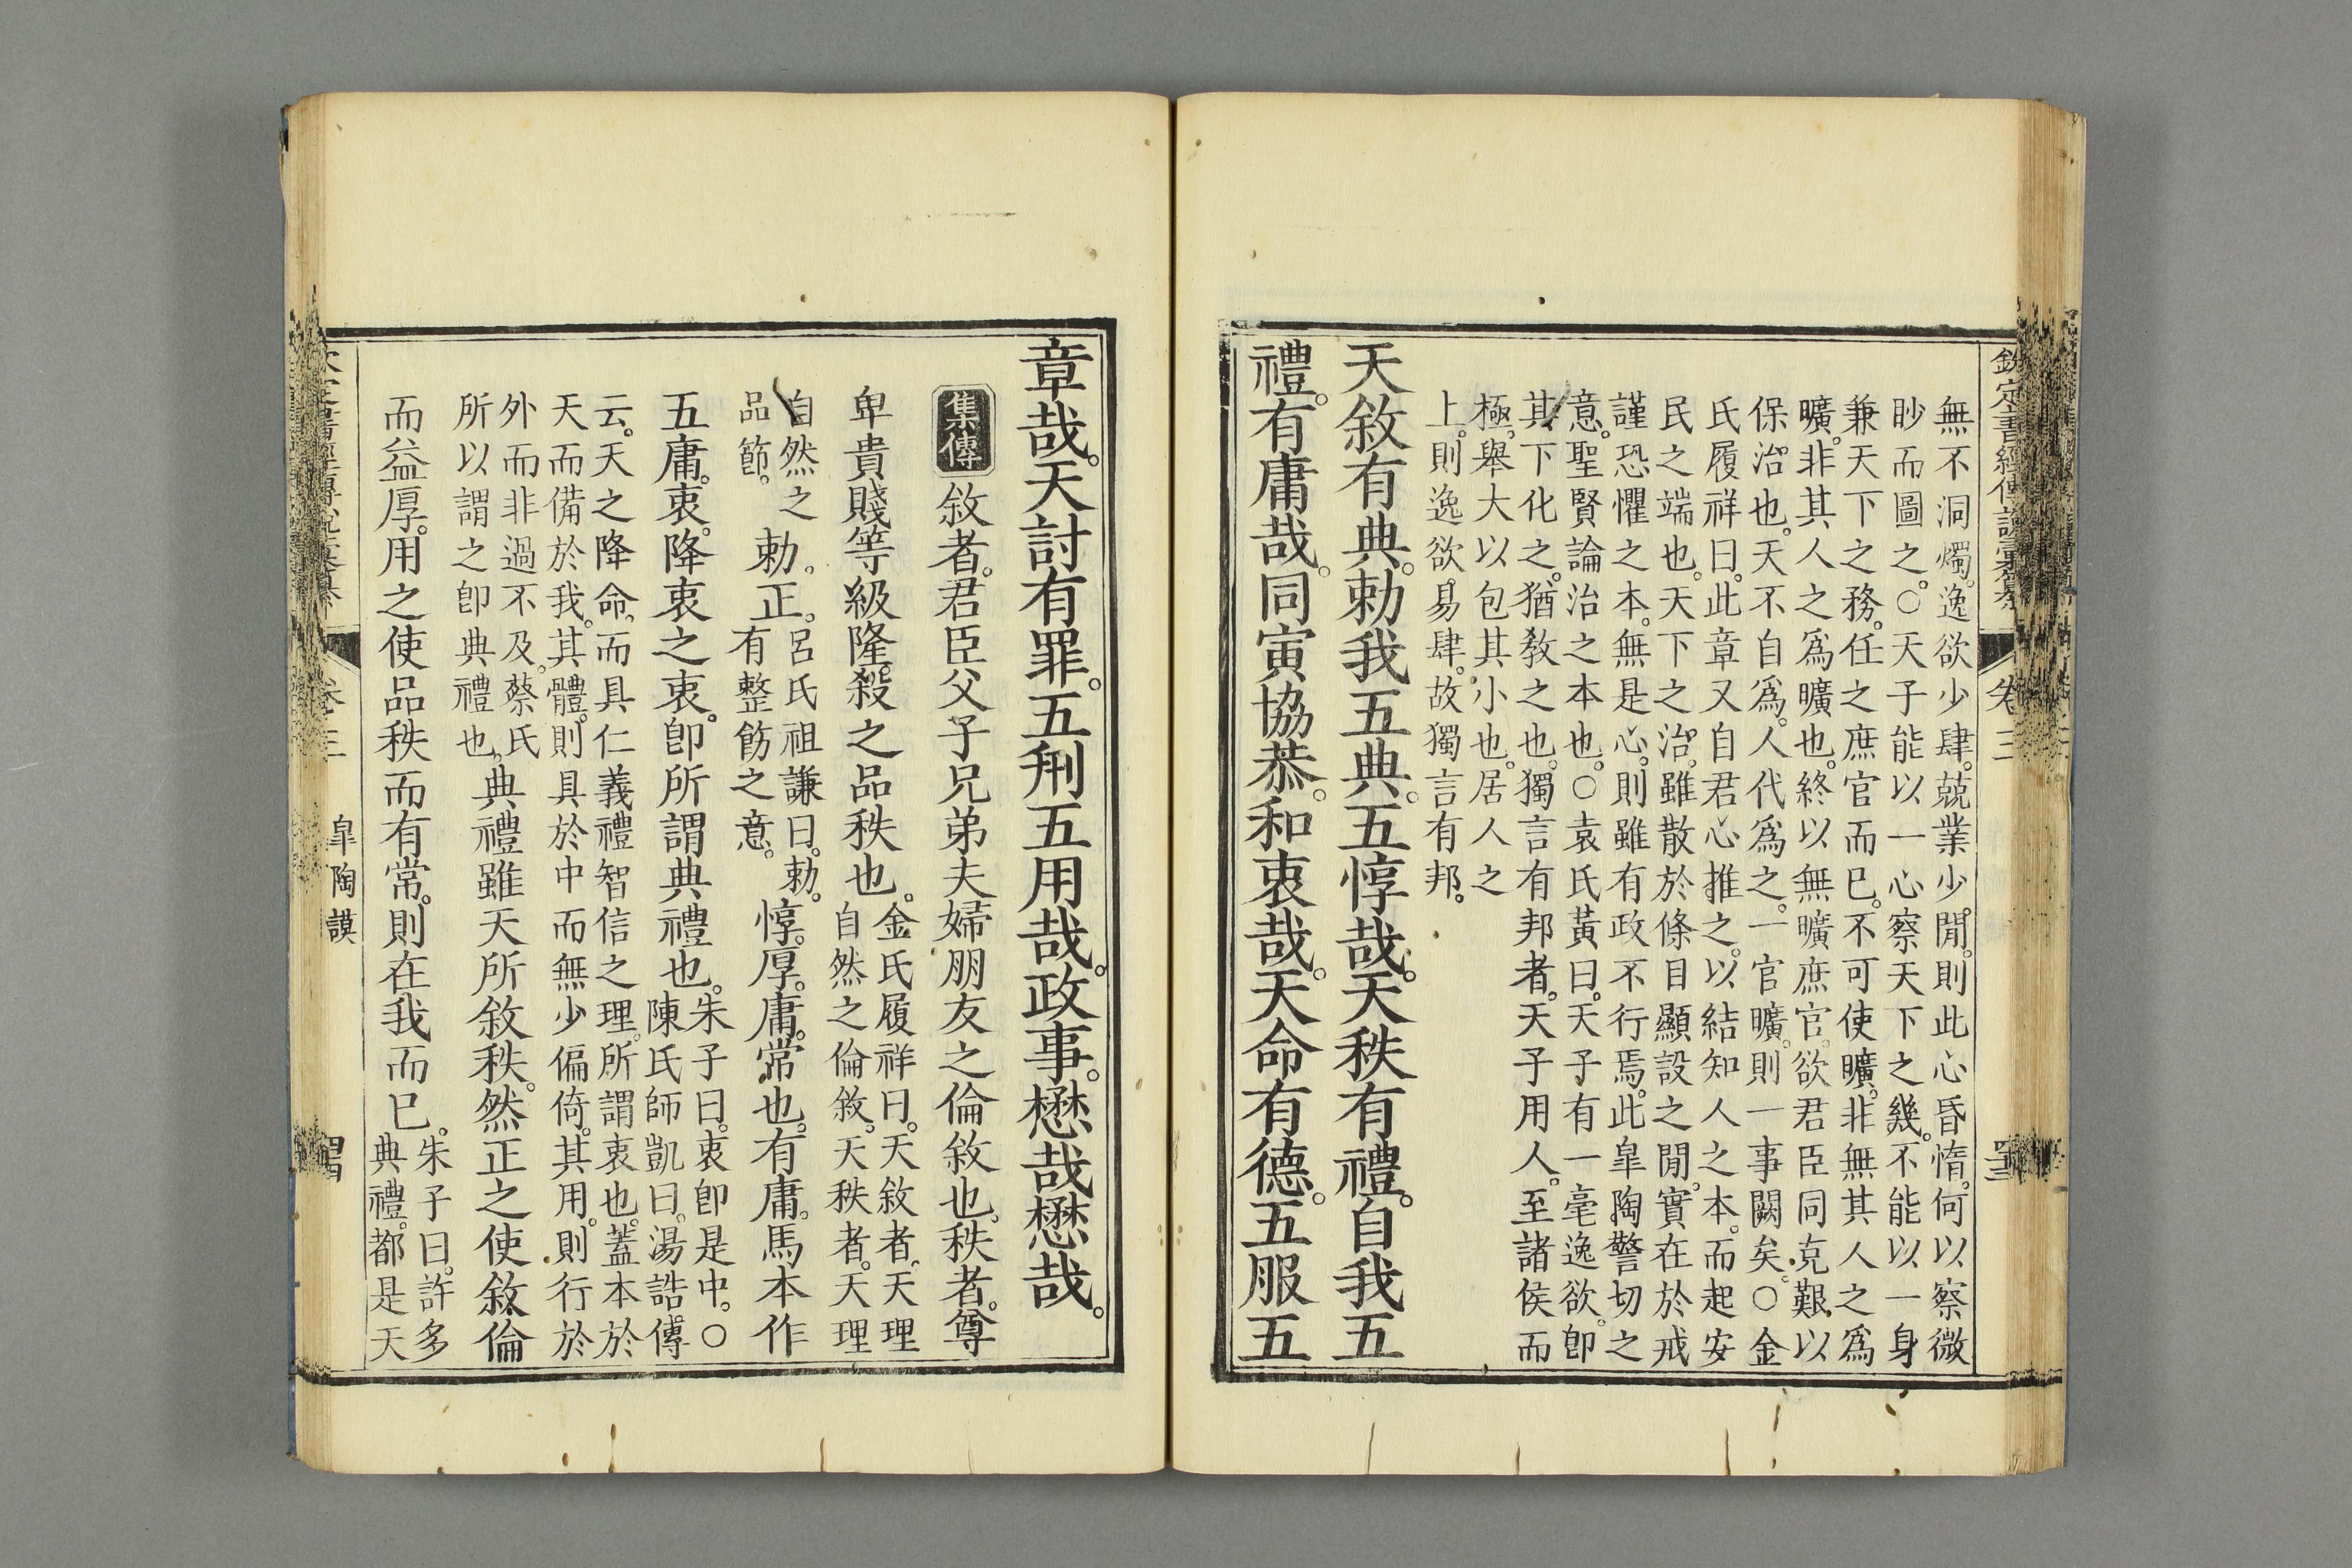 欽定書經傳說彙纂 卷三
無不洞燭。逸欲少肆。兢業少閒。則此心昏惰。何以察微
眇而圖之。○天子能以一心察天下之幾。不能以一身
兼天下之務。任之庶官而已。不可使曠。非無其人之爲
曠。非其人之爲曠也。終以無曠庶官。欲君臣同克艱以
保治也。天不自爲。人代爲之。一官曠。則一事闕矣。○金
氏履祥曰。此章又自君心推之。以結知人之本。而起安
民之端也。天下之治。雖散於條目顯設之閒。實在於戒
謹恐懼之本。無是心。則雖有政不行焉。此皐陶警切之
意。聖賢論治之本也。○袁氏黃曰。天子有一毫逸欲。卽
其下化之。猶敎之也。獨言有邦者。天子用人。至諸侯而
極。舉大以包其小也。居人之
上。則逸欲易肆。故獨言有邦。
天敘有典。勅我五典。五惇哉。天秩有禮。自我五
禮。有庸哉。同寅協恭。和衷哉。天命有德。五服五
章哉。天討有罪。五刑五用哉。政事。懋哉懋哉。
集傳 敘者。君臣父子兄弟夫婦朋友之倫敘也。秩者。尊
卑貴賤等級隆殺之品秩也。金氏履祥曰。天敘者。天理
自然之倫敘。天秩者。天理
自然之
品節。
勅。正。呂氏祖謙曰。勅。
有整飭之意。
惇。厚。庸。常也。有庸。馬本作
五庸。衷。降衷之衷。卽所謂典禮也。朱子曰。衷卽是中。○
陳氏師凱曰。湯誥。傳
云。天之降命。而具仁義禮智信之理。所謂衷也。蓋本於
天而備於我。其體。則具於中而無少偏倚。其用。則行於
外而非過不及。蔡氏
所以謂之卽典禮也。
典禮雖天所敘秩。然正之使敘倫
而益厚。用之使品秩而有常。則在我而已。朱子曰。許多
典禮。都是天
卷三 皐陶謨